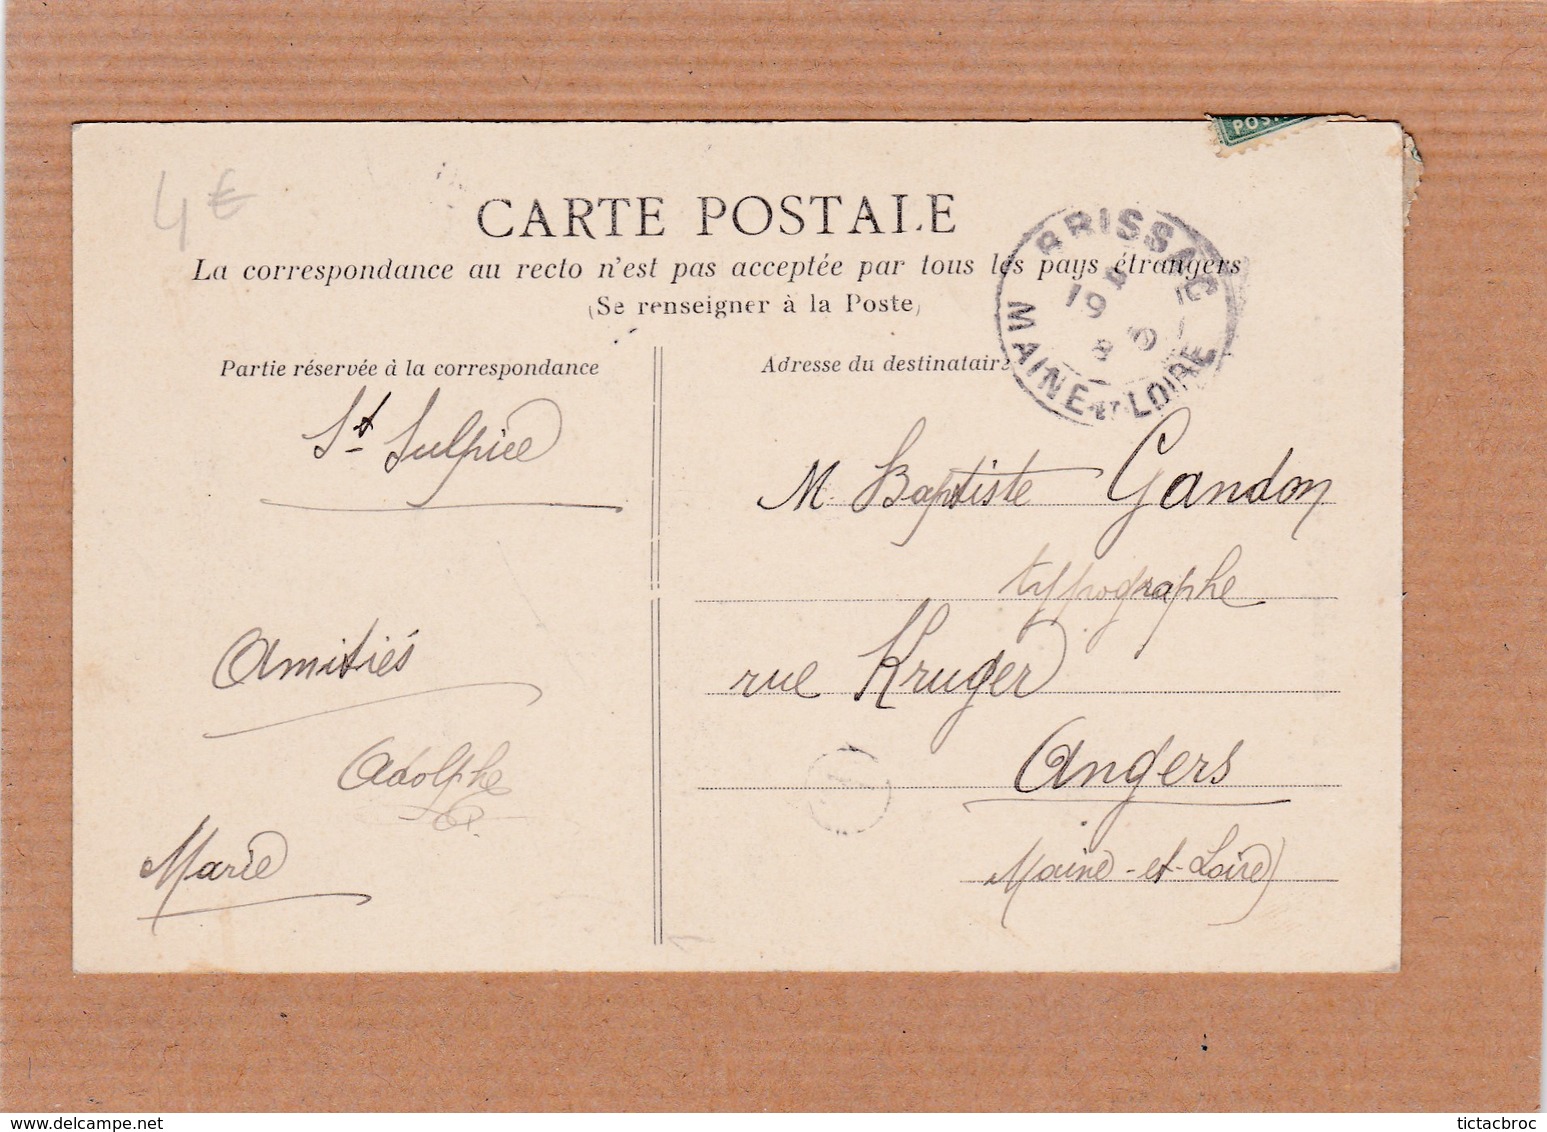 POST
4€
CARTE POSTALE
La correspondance au recto n'est pas acceptée par tous les pays étrangers
(Se renseigner à la Poste)
BRISSAC
19
MAINE-ET-LOIRE
Partie réservée à la correspondance
St Sulpice
Amitiés
Adolphe
Marie
Adresse du destinataire
M. Baptiste Gandon
typographe
rue Kruger
Angers
Maine-et-Loire)
www.delcampe.net
tictacbroc